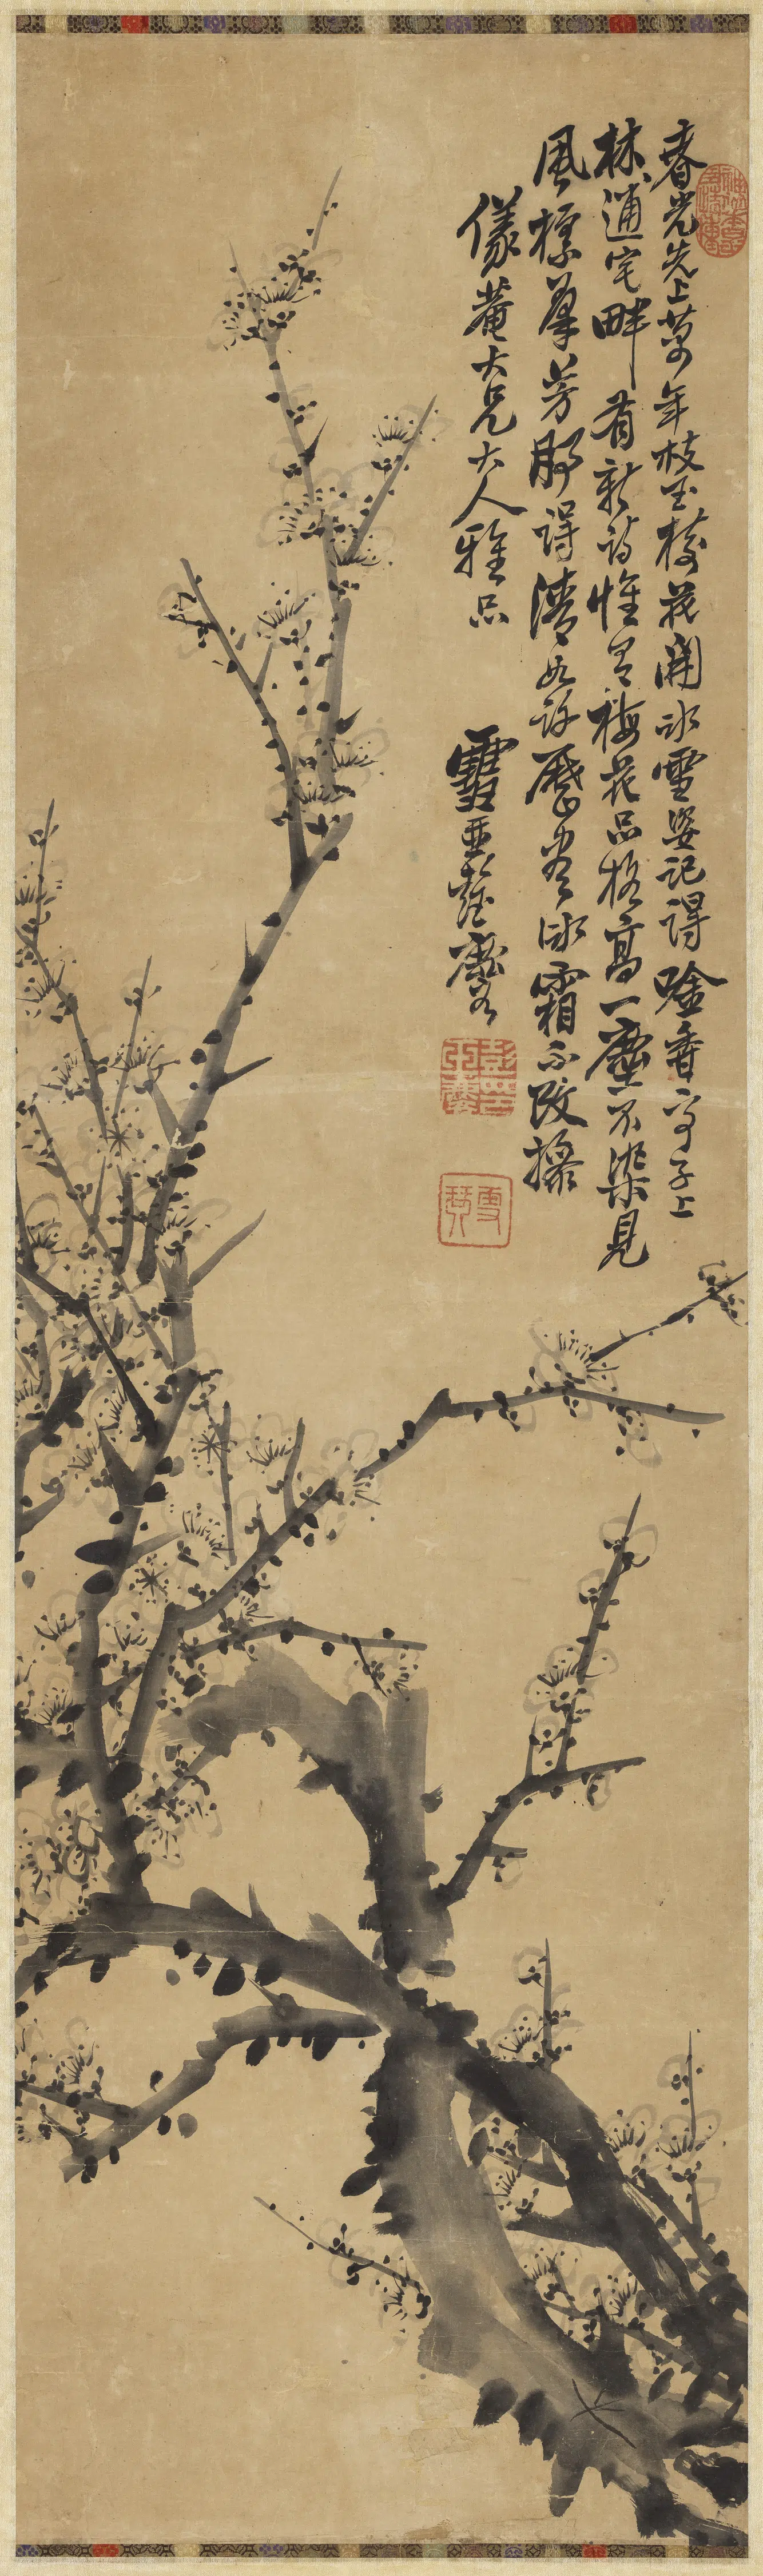 春光先上萬年枝玉梅花開冰雪姿記得唫香亭子上
林逋宅畔有新詩惟有梅花品格高一塵不染見
風標羣芳那得清如許歷盡冰霜不改操
儀菴大兄大人雅品
雪琴彭玉麐
雪琴